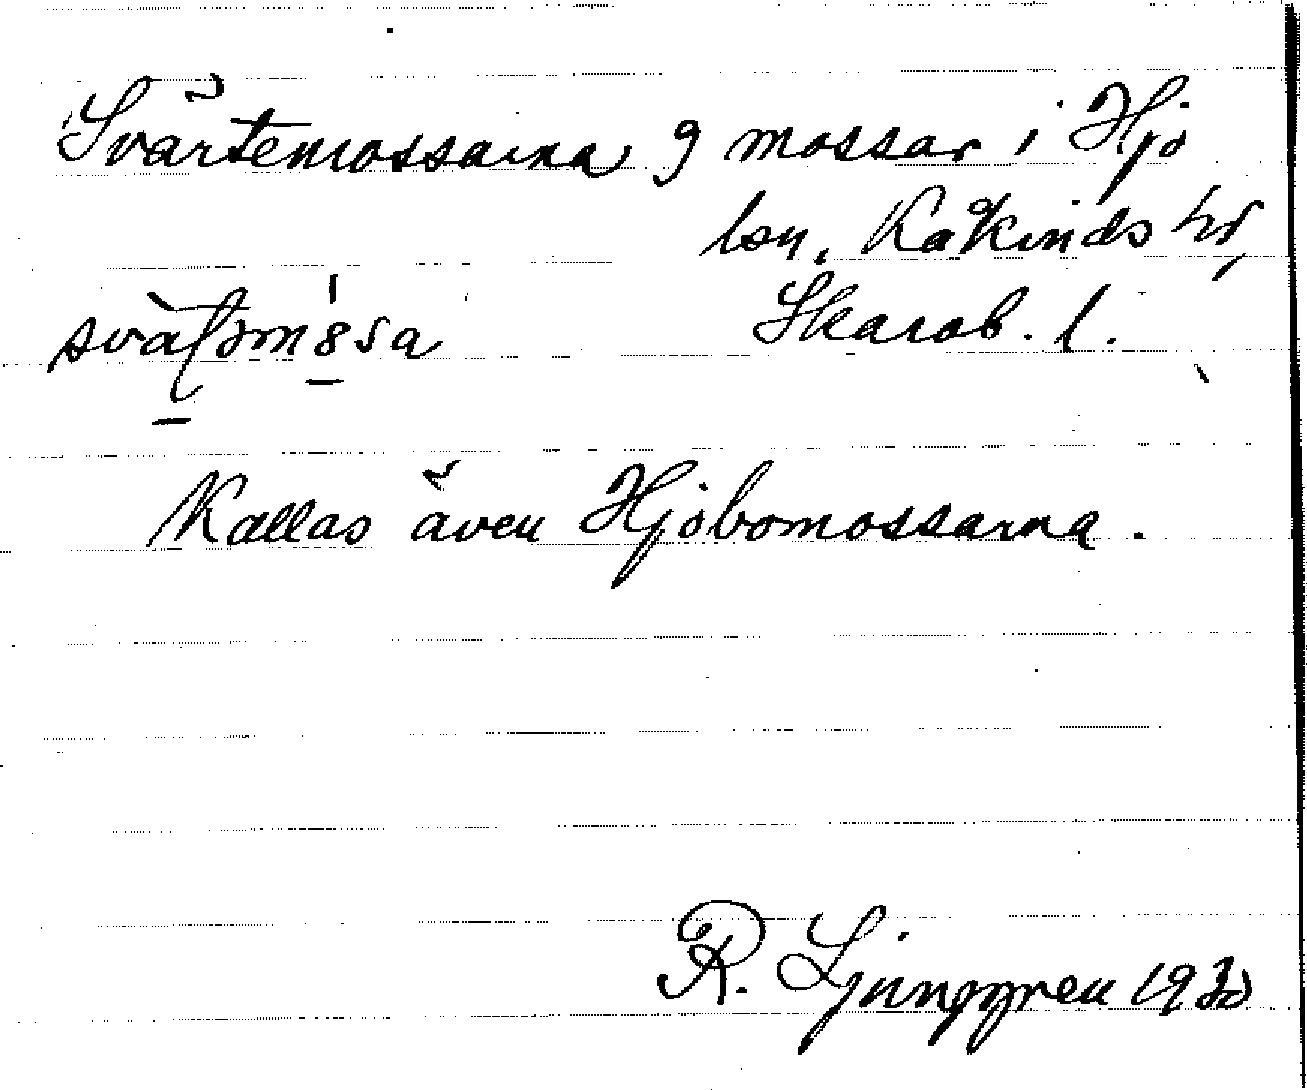 Svärtemossarna 9 mossar i Hjo
lsn. Kåkinds hd,
Skarab. l.
Kallas även Hjobomossarna.
R. Ljunggren 1930